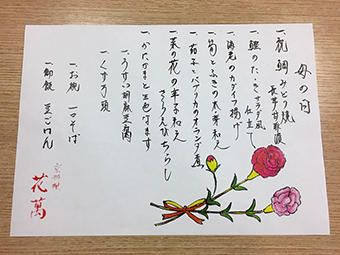 母の日
一、祝 鯛みどり焼
長芋甘酢漬
一、鰹のたゝきサラダ風
仕立て
一、海老のカダイフ揚げ
一、筍とふきの土佐和え
一、茄子とパプリカのオランダ煮
一、菜の花の辛子和え
さくらえびちらし
一、かたがまと五色なます
一、うすい胡麻豆腐
一、くずまん頭
一、お椀 一口そば
一、御飯 豆ごはん
京料理
花萬